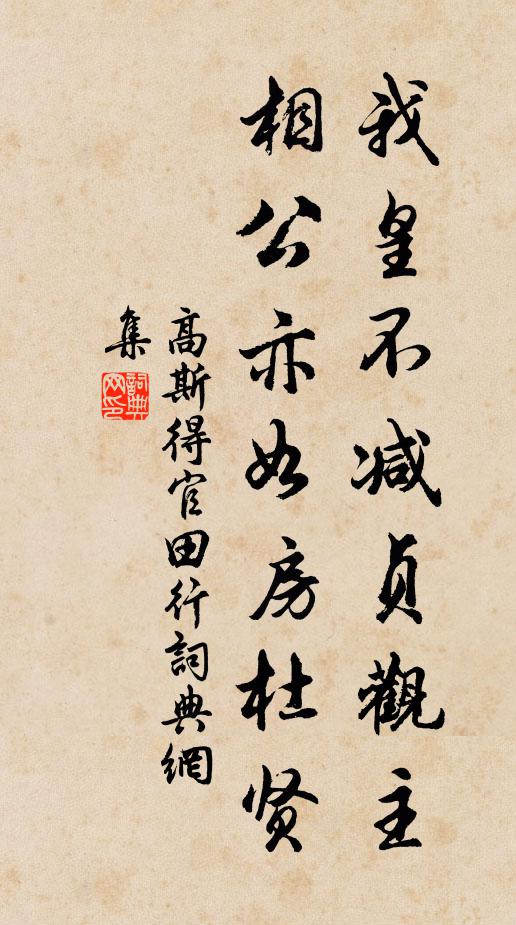 我皇不减贞觀主
相公亦如房杜贤
高斯得官田行詞典網
集
詞典网印